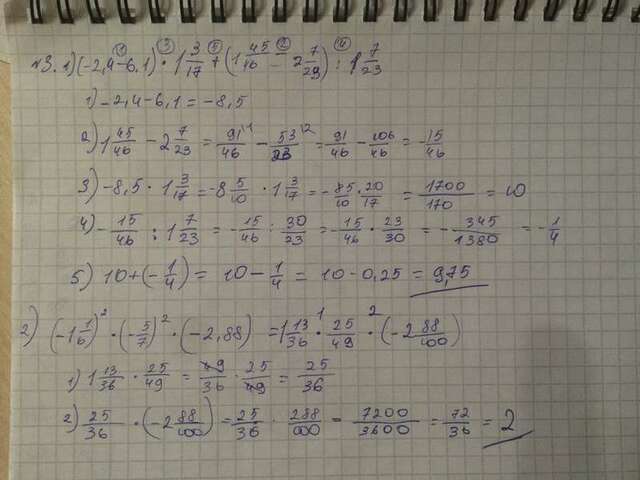 №3. 1) (-2,4-6,1) · 1 3/17 + (1 45/46 - 2 7/23) : 1 7/23
1) -2,4-6,1 = -8,5
2) 1 45/46 - 2 7/23 = 91/46 - 53/23 = 91/46 - 106/46 = -15/46
3) -8,5 · 1 3/17 = -8 5/10 · 1 3/17 = -85/10 · 20/17 = 1700/170 = 10
4) -15/46 : 1 7/23 = -15/46 : 30/23 = -15/46 · 23/30 = -345/1380 = -1/4
5) 10+(-1/4) = 10 - 1/4 = 10-0,25 = 9,75
2) (-1 1/6)² · (-5/7)² · (-2,88) = 1 13/36 · 25/49 · (-2 88/100)
1) 1 13/36 · 25/49 = 49/36 · 25/49 = 25/36
2) 25/36 · (-2 88/100) = 25/36 · 288/100 = 7200/3600 = 72/36 = 2